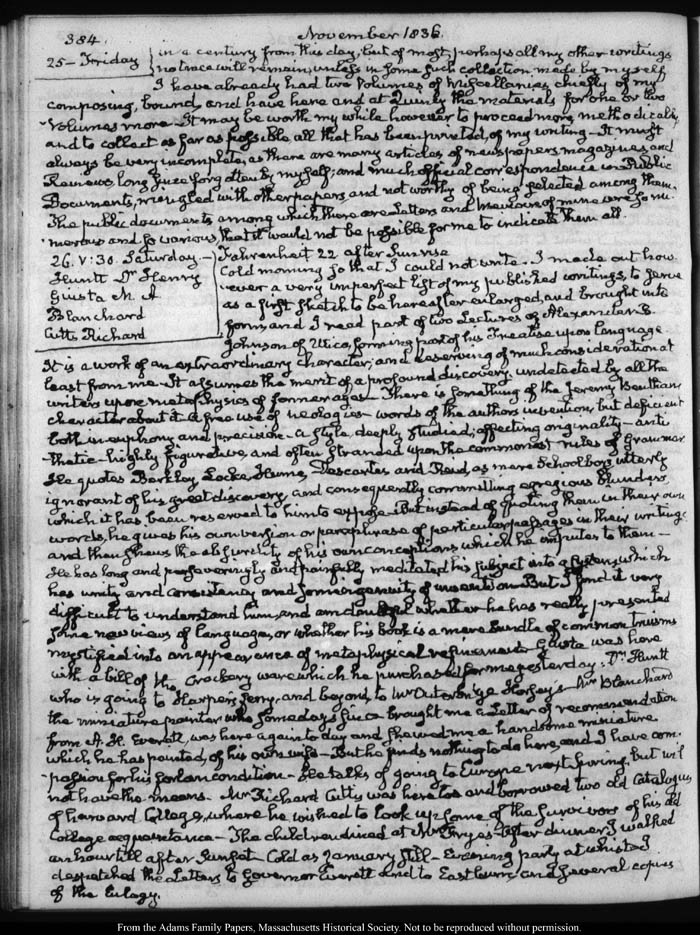 384.
November 1836.
25 - Friday
in a century from this day, but of most, perhaps all my other writings
no trace will remain, unless in some such collection, made by myself
I have already had two Volumes of Miscellanies chiefly of my
composing, bound, and have here and at Quincy the materials for one or two
Volumes more - It may be worth my while however to proceed more methodically
and to collect as far as possible, all that has been printed, of my writing - It must
always be very incomplete, as there are many articles of newspapers magazines, and
Reviews, long since forgotten by myself; and much official correspondence in Public
Documents, mingled with other papers, and not worthy of being selected among them.
The public documents among which there are Letters and Memoirs of mine are so nu-
merous and so various, that it would not be possible for me to indicate them all.
26. V:30. Saturday -
Huntt Dr Henry
Giusta M. A
Blanchard
Cutts Richard
Fahrenheit 22 after Sunrise
Cold morning so that I could not write - I made out how
ever a very imperfect list of my published writings, to serve
as a first sketch to be hereafter enlarged, and brought into
form, and I read part of two Lectures of Alexander B.
Johnson of Utica, forming part of his Treatise upon language
It is a work of an extraordinary character, and deserving of much consideration at
least from me - It assumes the merit of a profound discovery, undetected by all the
writers upon metaphysics of former ages - There is something of the Jeremy Bentham
character about it a free use of neologies - words of the authors invention, but deficient
both in euphony and precision - a style, deeply studied, affecting originality - anti
thetic - highly figurative, and often stranded upon the commonest rules of Grammar
He quotes Berkley Locke, Hume, Descartes and Reid, as mere School boys utterly
ignorant of his great discovery, and consequently committing egregious blunders,
which it has been reserved to him to expose - But instead of quoting them in their own
words, he gives his own version or paraphrase of particular passages in their writings
and then shews the absurdity of his own conceptions which he imputes to them -
He has long and perseveringly and painfully meditated his subject into a System, which
has unity and consistency, and some ingenuity of invention. But I find it very
difficult to understand him, and am doubtful whether he has really presented
some new views of language, or whether his book is a mere bundle of common truisms
mystified into an appearance of metaphysical refinement - Giusta was here
with a bill of the Crockery ware which he purchased for me yesterday; Dr Huntt
who is going to Harpers ferry, and beyond, to Mr Outerbridge Horsey's Mr Blanchard
the miniature painter who some days since brought me a Letter of recommendation
from A. H. Everett, was here again to day and shewed me a handsome miniature
which he has painted, of his own wife - But he finds nothing to do here, and I have com-
passion for his forlorn condition - He talks of going to Europe next Spring, but will
not have the means - Mr Richard Cutts was here too and borrowed two old Catalogues
of Harvard College, where he wished to look up some of the survivors of his old
College acquaintance - The children dined at Mr Frye's - After dinner, I walked
an hour till after Sunset - Cold as January still - Evening party at whist - I
despatched the Letters to Governor Everett and to Eastburn and several copies
of the Eulogy.
From the Adams Family Papers, Massachusetts Historical Society. Not to be reproduced without permission.